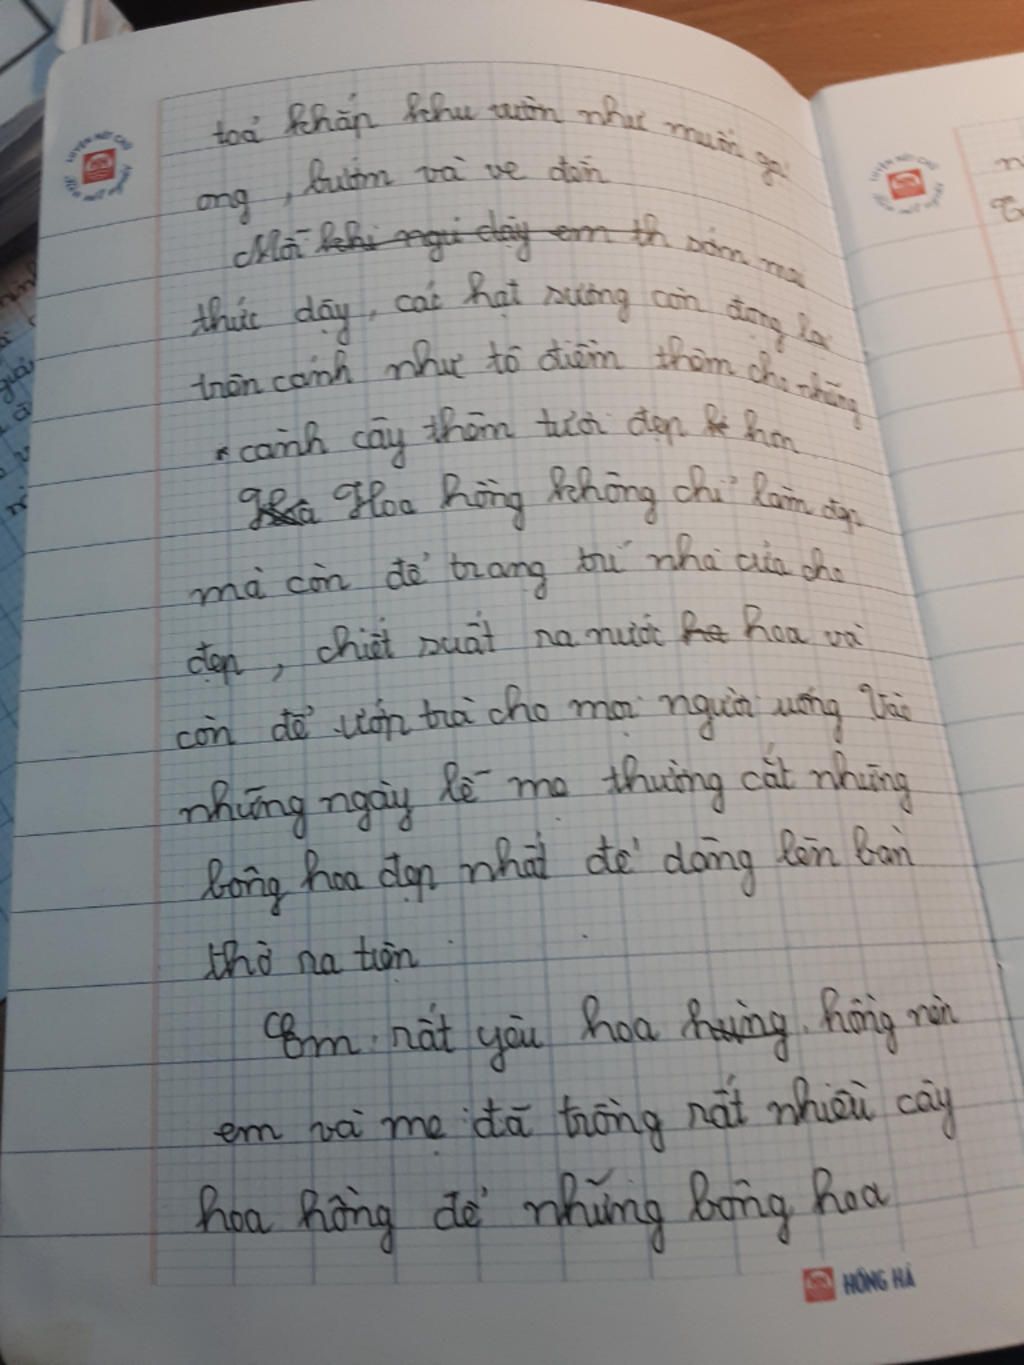 toả khắp khu vườn như muốn gọi
ong, bướm và ve đến
Mỗi khi ngủ dậy em th sớm mai
thức dậy, các hạt sương còn đọng lại
trên cánh như tô điểm thêm cho những
cành cây thêm tươi đẹp hơn
Hoa Hoa hồng không chỉ làm đẹp
mà còn để trang trí nhà cửa cho
đẹp, chiết suất ra nước ho hoa và
còn để ướp trà cho mọi người uống Vào
những ngày lễ mẹ thường cắt những
bông hoa đẹp nhất để dâng lên bàn
thờ ra tiên
Em rất yêu hoa hùng hồng nên
em và mẹ đã trồng rất nhiều cây
hoa hồng để những bông hoa
HỒNG HÀ